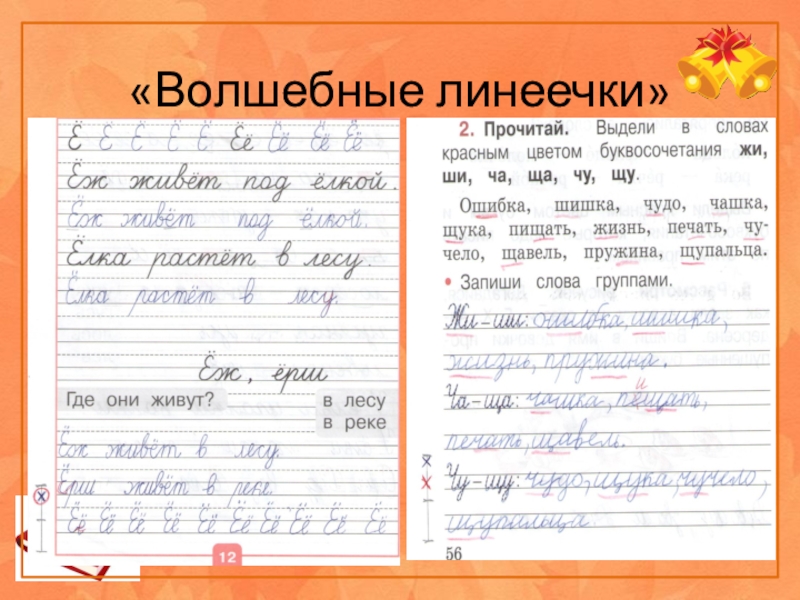 «Волшебные линеечки»
Ё Ё Ё Ё Ё Ёё Ёё Ёё Ёё
Ёж живёт под ёлкой.
Ёж живёт под ёлкой.
Ёлка растёт в лесу.
Ёлка растёт в лесу.
Ёж, ёрш
Где они живут? в лесу
в реке
Ёж живёт в лесу.
Ёрш живёт в реке.
Ёё Ёё Ёё Ёё Ёё Ёё Ёё Ёё Ёё Ёё
12
2. Прочитай. Выдели в словах
красным цветом буквосочетания жи,
ши, ча, ща, чу, щу.
Ошибка, шишка, чудо, чашка,
щука, пищать, жизнь, печать, чу-
чело, щавель, пружина, щупальца.
• Запиши слова группами.
Жи-ши: ошибка, шишка,
жизнь, пружина.
и
Ча-ща: чашка, пещать,
печать, щавель.
Чу-щу: чудо, щука чучело,
щупальца
56